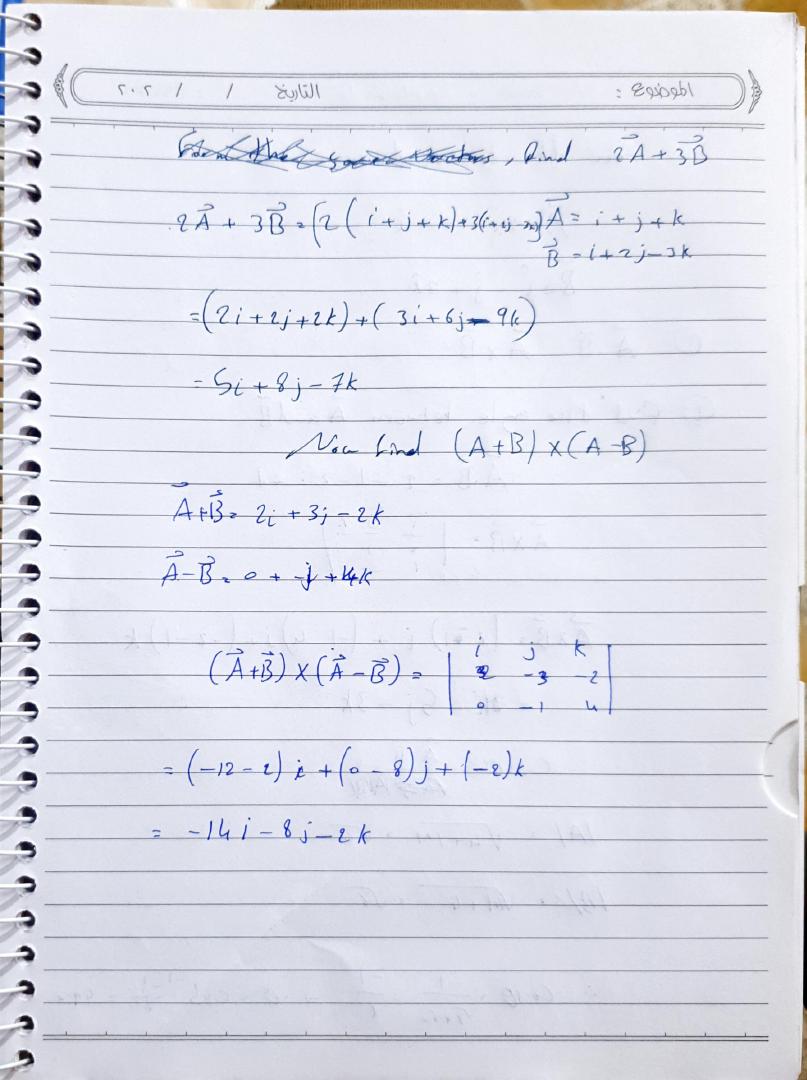 الموضوع :
التاريخ / / ٢٠٢
, find 2A⃗ + 3B⃗
2A⃗ + 3B⃗ = [2(i+j+k)+3(i+2j-3k)] A⃗ = i + j + k
B⃗ = i+2j-3k
=(2i+2j+2k)+(3i+6j-9k)
= 5i+8j-7k
Now find (A+B) x (A-B)
A⃗+B⃗ = 2i + 3j - 2k
A⃗-B⃗ = 0 + -j + 4k
(A⃗+B⃗) x (A⃗-B⃗) = | i j k
2 -3 -2
0 -1 4 |
= (-12-2) i + (0-8) j + (-2) k
= -14i - 8j - 2k